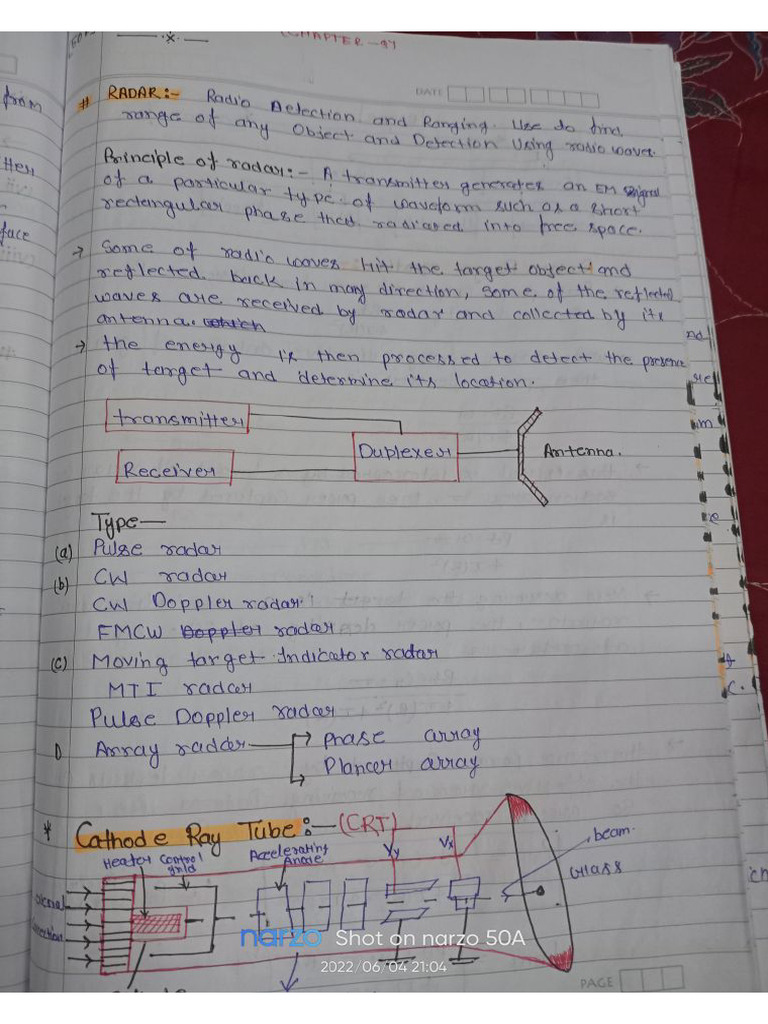 (CHAPTER-
DATE
# RADAR:- Radio Detection and Ranging. Use to find
range of any Object and Detection Using radio wave.
Principle of radar:- A transmitter generates an EM signal
of a particular type of waveform such as a short
rectangular phase that radiated into free space.
→ Some of radio waves hit the target object and
reflected back in many direction, some of the reflected
waves are received by radar and collected by its
antenna. which
→ the energy is then processed to detect the presence
of target and determine its location.
transmitter
Receiver
Duplexer
Antenna.
Type—
(a) Pulse radar
(b) CW radar
CW Doppler radar
FMCW Doppler radar
(c) Moving target Indicator radar
MTI radar
Pulse Doppler radar
D Array radar → Phase array
→ Plancer array
* Cathode Ray Tube:—(CRT)
Heater
Control grid
Accelerating Anode
Vy
Vx
beam
Glass
narzo Shot on narzo 50A
2022/06/04 21:04
PAGE
from
face